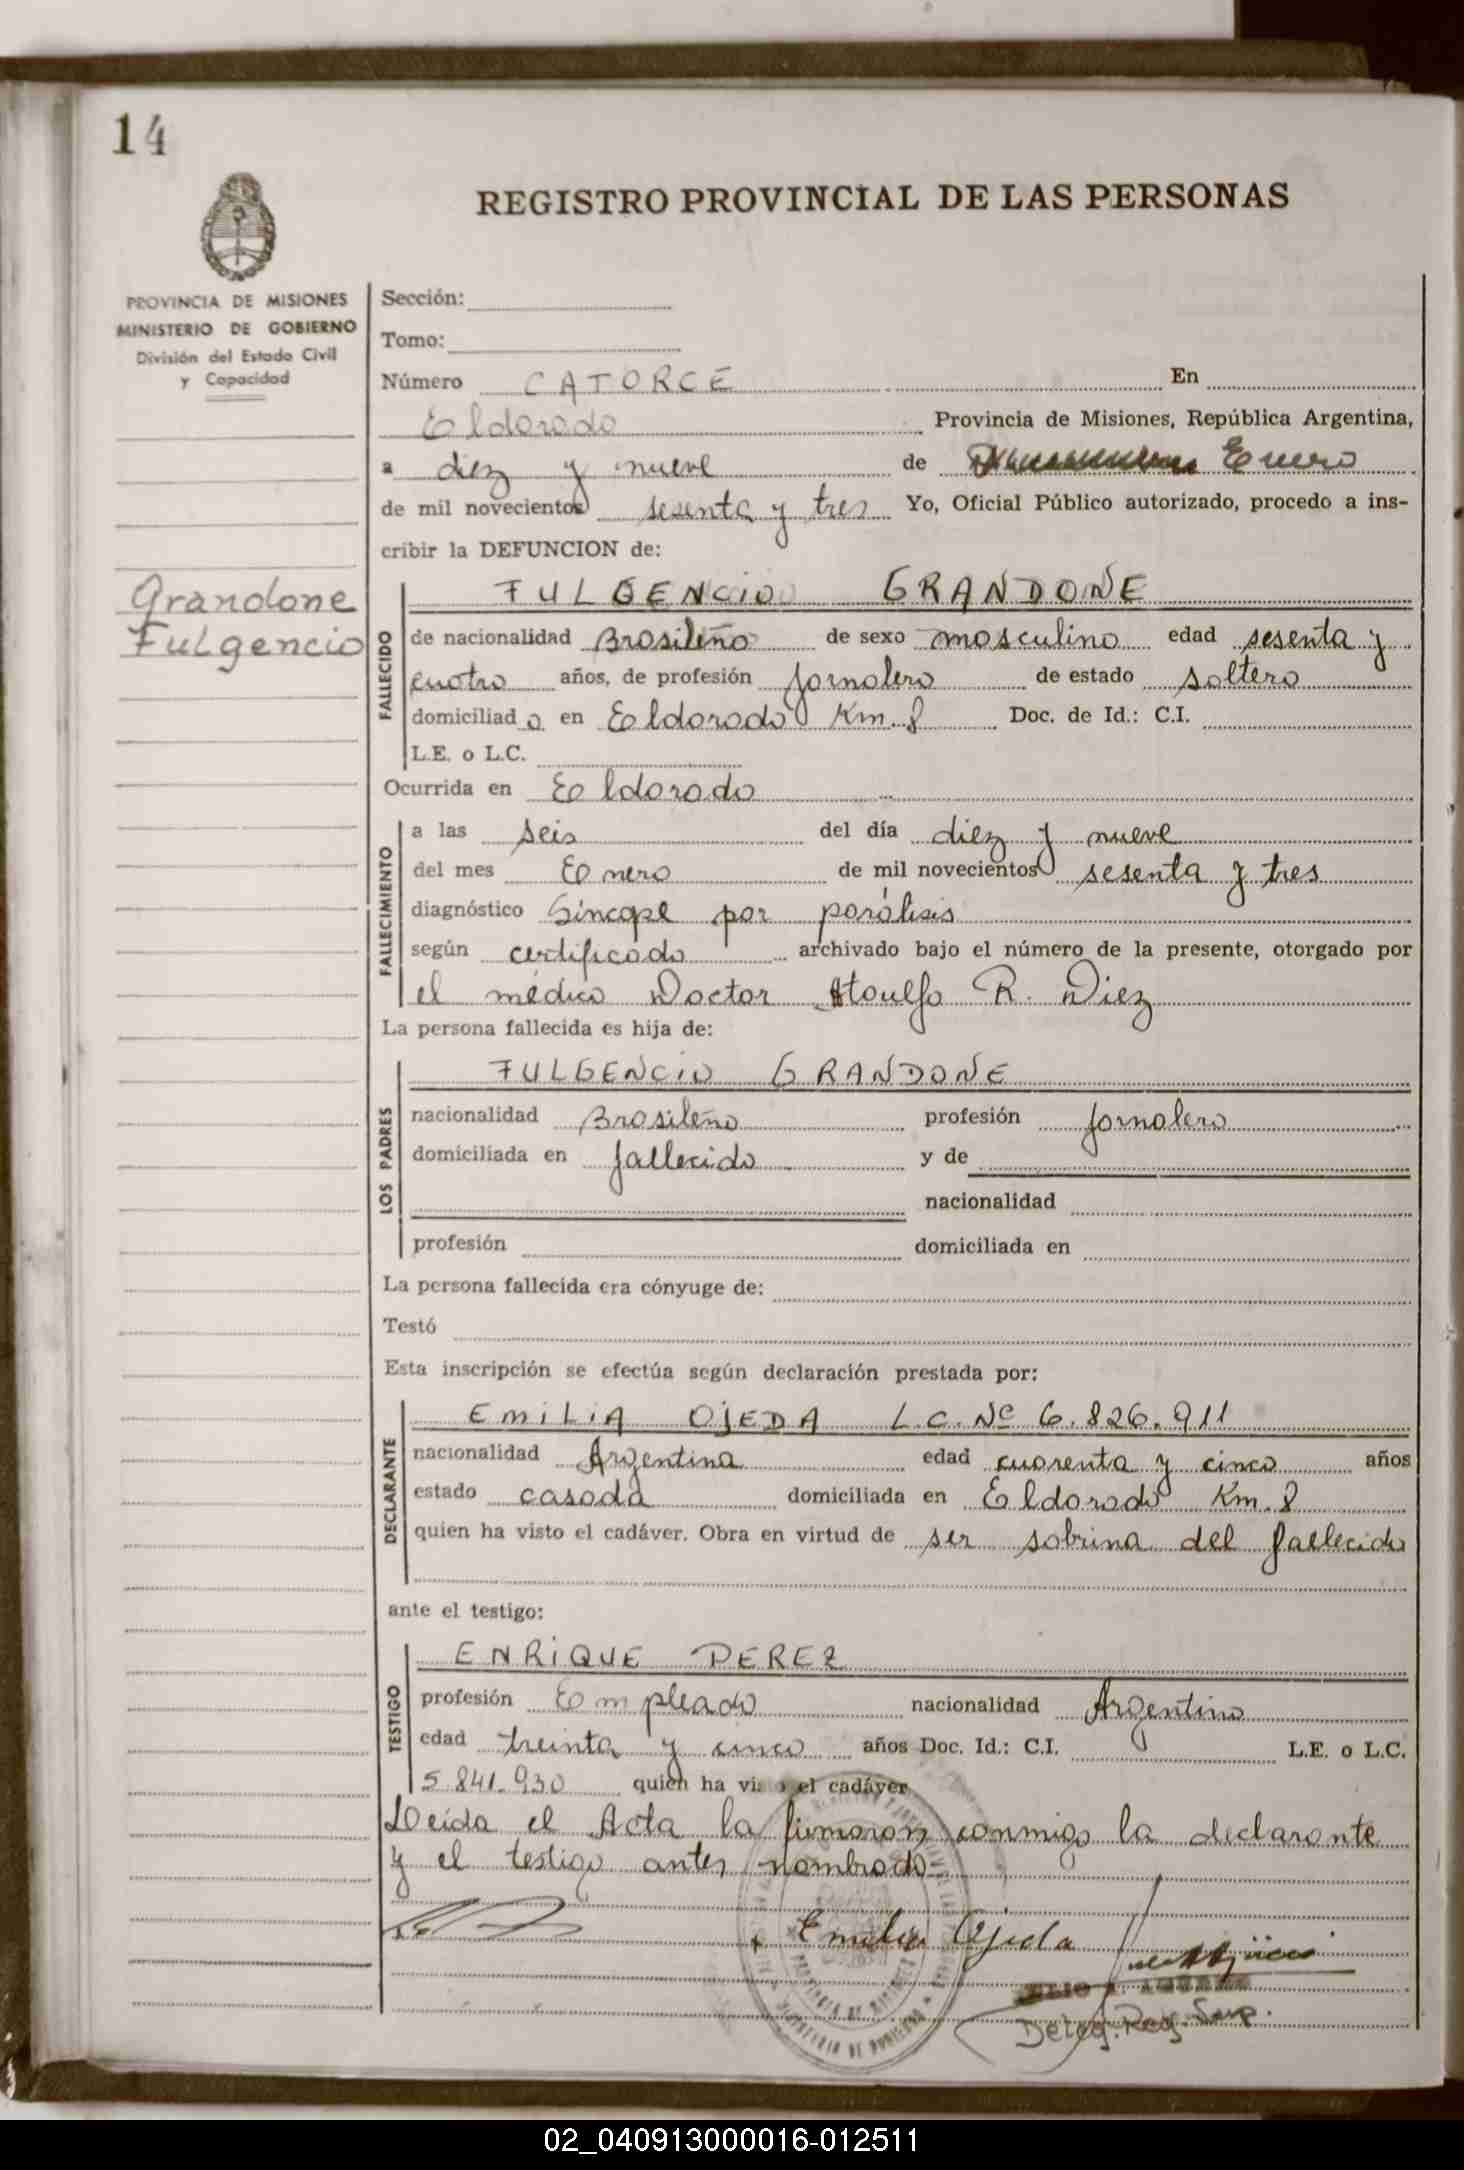 14
REGISTRO PROVINCIAL DE LAS PERSONAS
PROVINCIA DE MISIONES
MINISTERIO DE GOBIERNO
División del Estado Civil
y Capacidad
Grandone
Fulgencio
Sección:
Tomo:
Número CATORCE En
Eldorado Provincia de Misiones, República Argentina,
a diez y nueve de Enero
de mil novecientos sesenta y tres Yo, Oficial Público autorizado, procedo a ins-
cribir la DEFUNCION de:
FALLECIDO
FULGENCIO GRANDONE
de nacionalidad Brasileño de sexo masculino edad sesenta y
cuatro años, de profesión Jornalero de estado soltero
domiciliado en Eldorado Km. 8 Doc. de Id.: C.I.
L.E. o L.C.
Ocurrida en Eldorado
FALLECIMIENTO
a las seis del día diez y nueve
del mes Enero de mil novecientos sesenta y tres
diagnóstico Síncope por parálisis
según certificado archivado bajo el número de la presente, otorgado por
el médico Doctor R. Diez
La persona fallecida es hija de:
LOS PADRES
FULGENCIO GRANDONE
nacionalidad Brasileño profesión Jornalero
domiciliada en fallecido y de
nacionalidad
profesión domiciliada en
La persona fallecida era cónyuge de:
Testó
Esta inscripción se efectúa según declaración prestada por:
DECLARANTE
EMILIA OJEDA L.C. Nº 6.826.911
nacionalidad Argentina edad cuarenta y cinco años
estado casada domiciliada en Eldorado Km. 8
quien ha visto el cadáver. Obra en virtud de ser sobrina del fallecido
ante el testigo:
TESTIGO
ENRIQUE PEREZ
profesión Empleado nacionalidad Argentino
edad treinta y cinco años Doc. Id.: C.I. L.E. o L.C.
5.841.930 quien ha visto el cadáver
Leída el Acta la firmaron conmigo la declarante
y el testigo antes nombrado=
Emilia Ojeda
PROVINCIA DE MISIONES
Deleg. Reg.
02_040913000016-012511